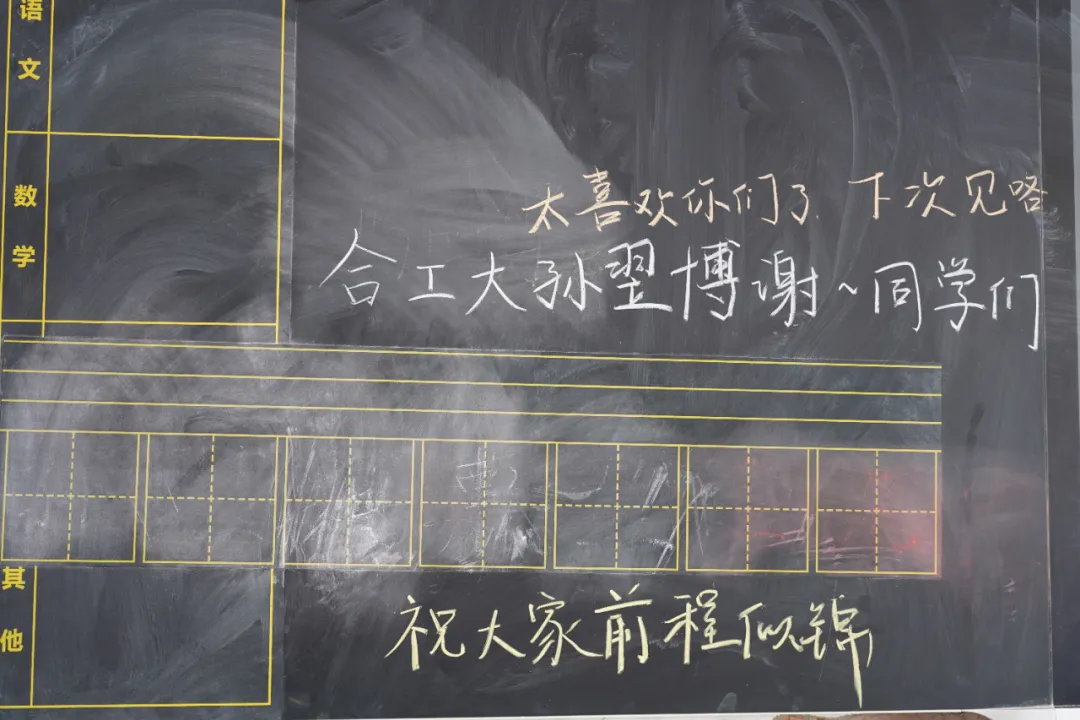 语文
数学
太喜欢你们了 下次见咯
合工大孙翌博谢~同学们
其他
祝大家前程似锦